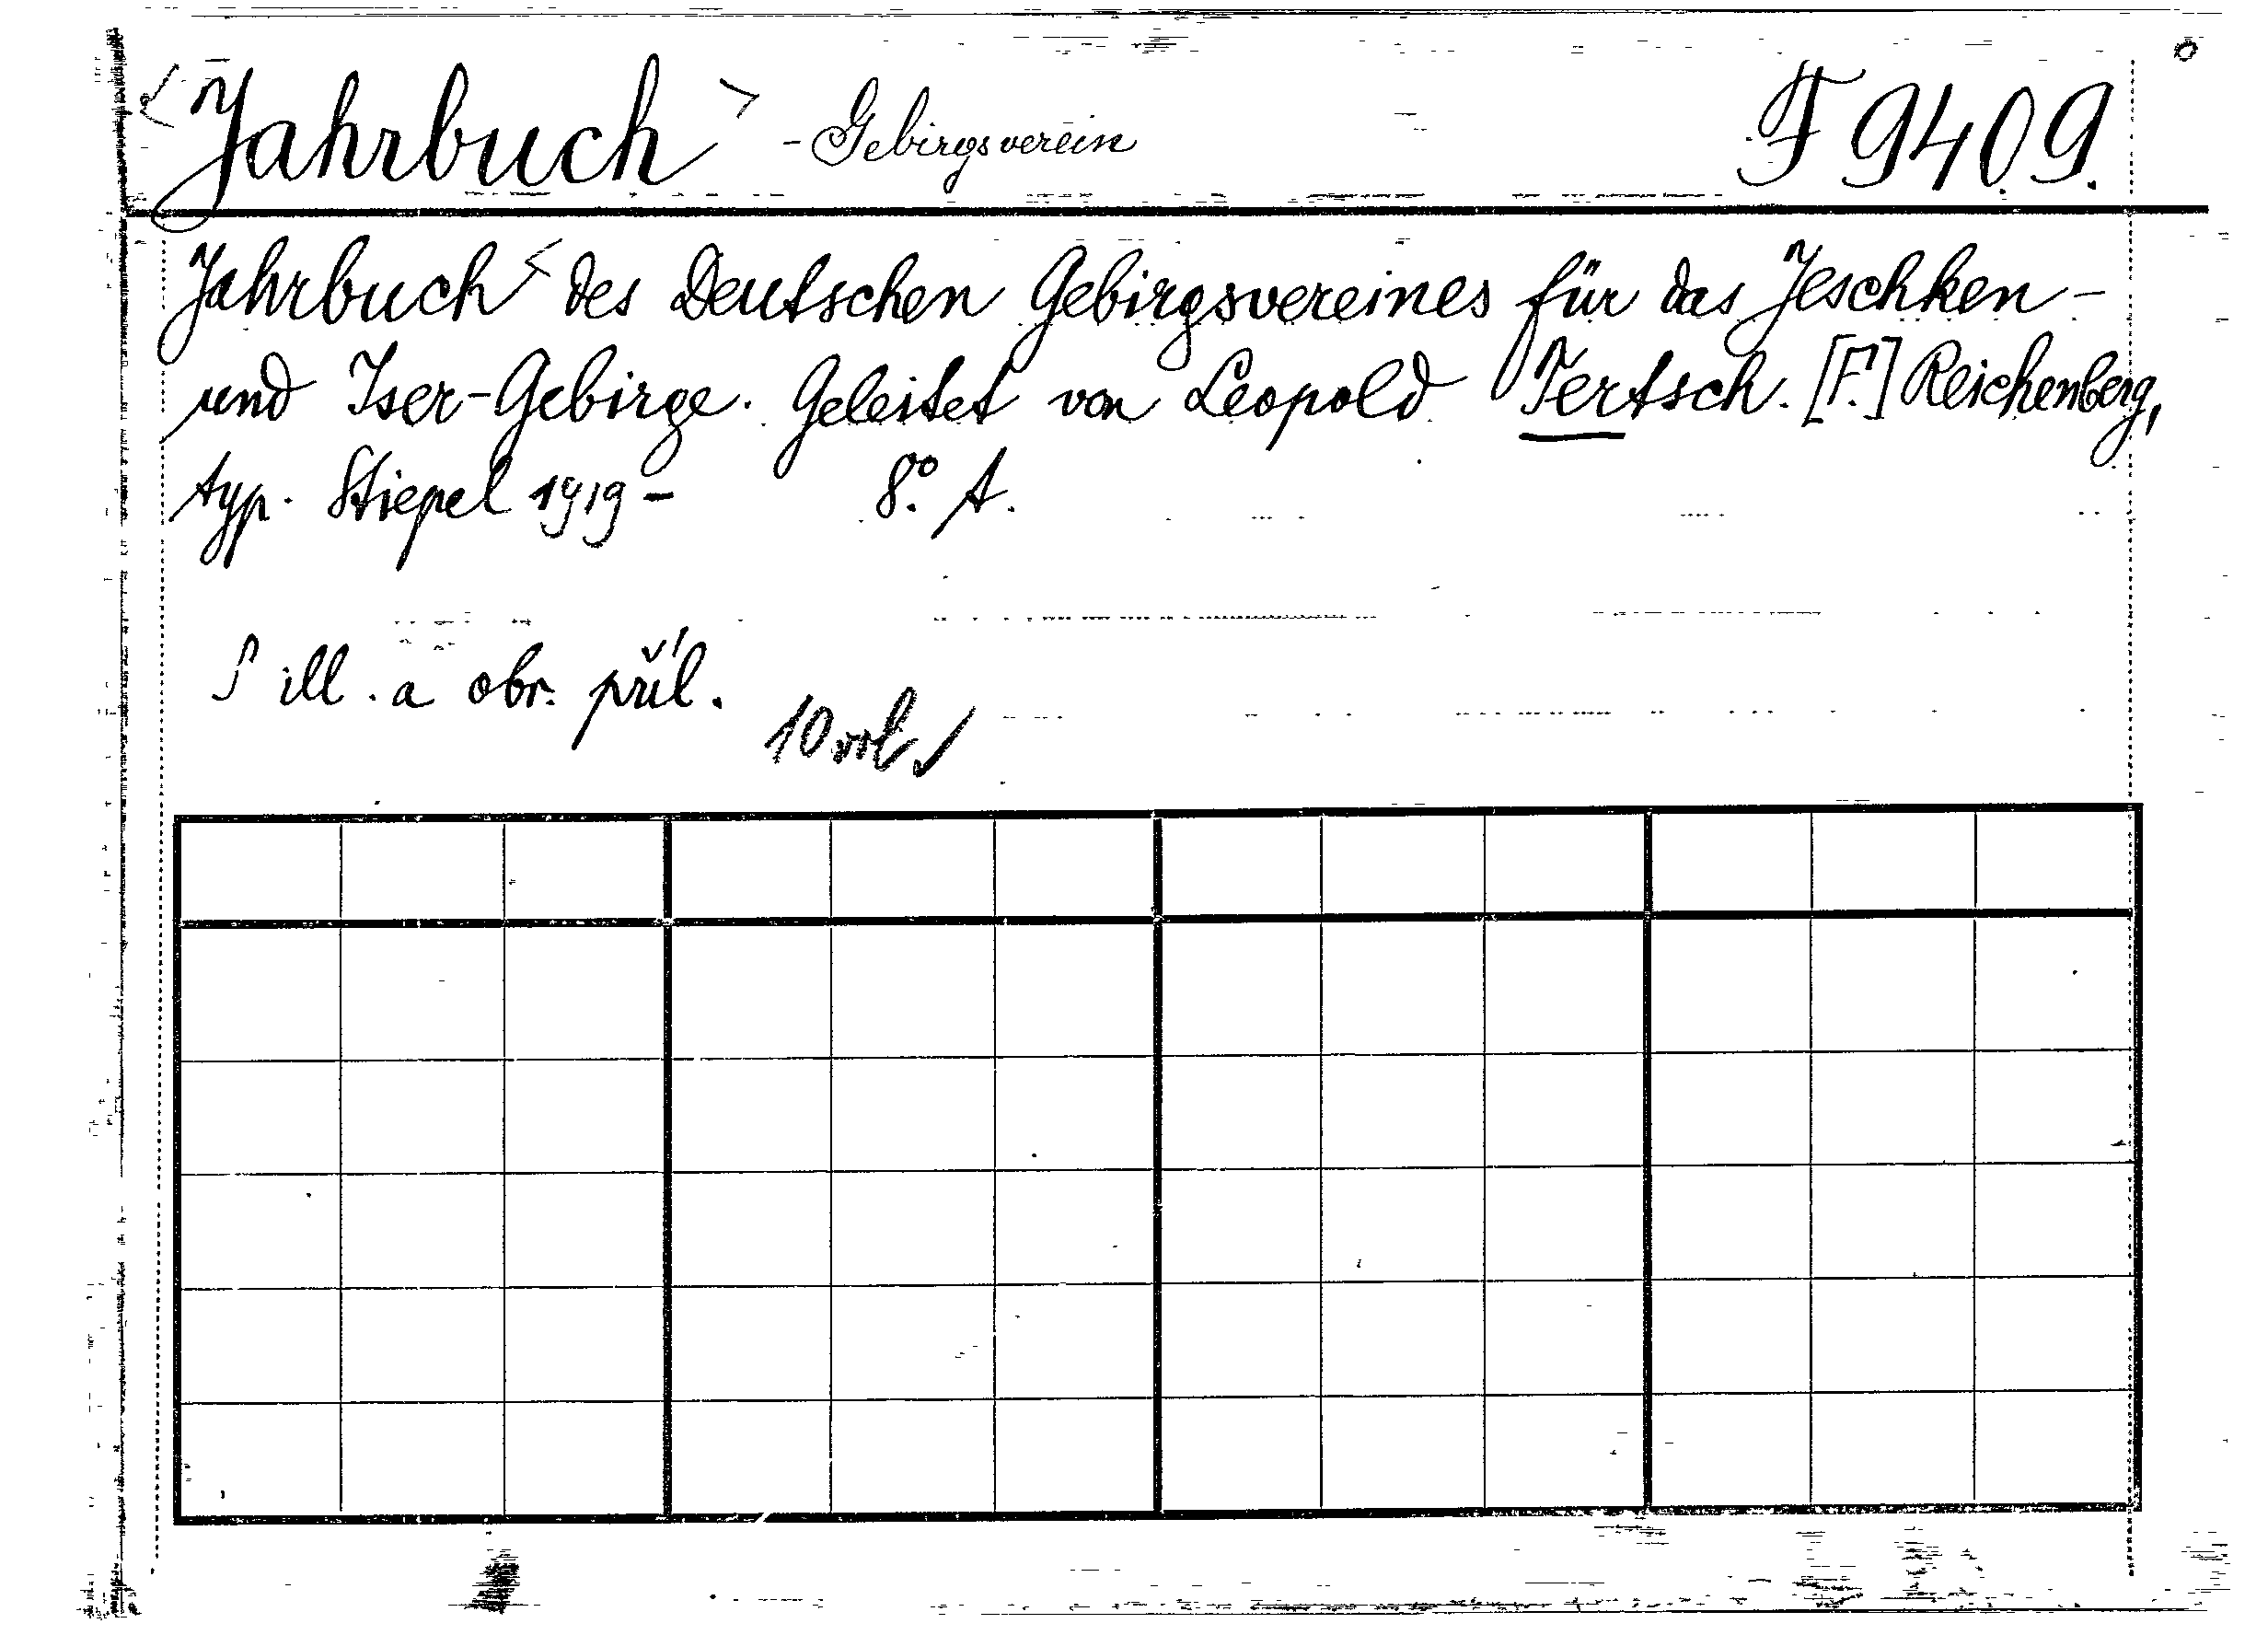 <Jahrbuch> - Gebirgsverein F 9409.
Jahrbuch < des Deutschen Gebirgsvereines für das Jeschken-
und Iser-Gebirge. Geleitet von Leopold Tertsch. [F.] Reichenberg,
typ. Stiepel 1919- 8°. t.
S ill. a obr. příl.
10 vol